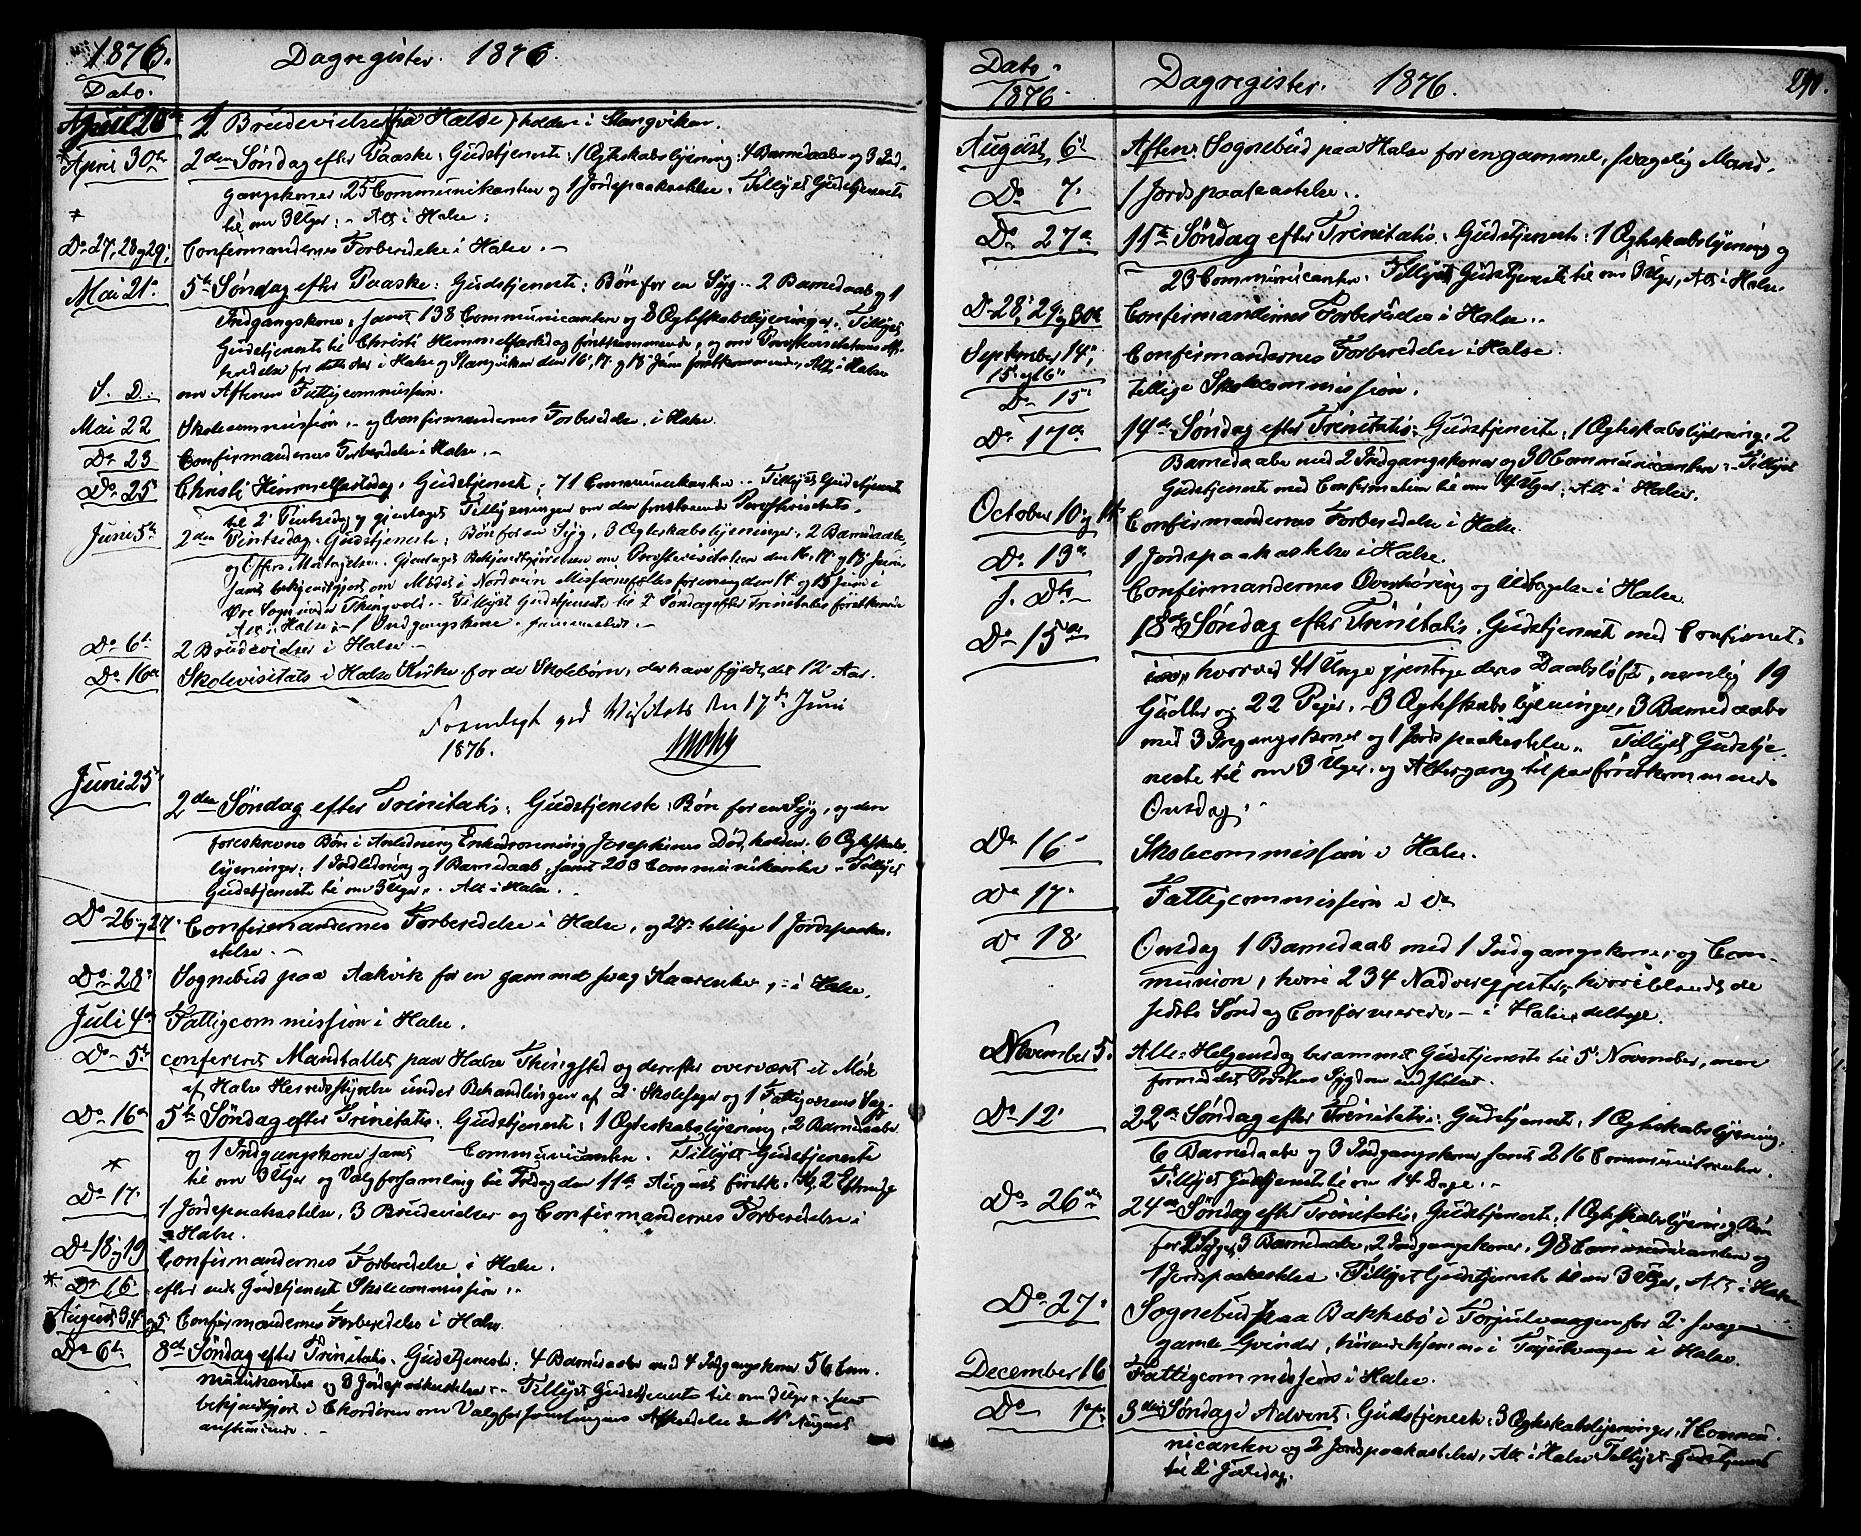 1876.
Dato.
Dagregister. 1876.
April 28de 2 Brudevielser (fra Halse) holden i Stangviken.
* April 30te 2den Søndag efter Paaske: Gudstjeneste: 1 Ægteskabslysning: 4 Barnedaabe og 3 Ind-
gangskoner 25 Communikanter og 1 Jordspaakastelse. Tillyst Gudstjeneste
til om 3 Uger. - Alt i Halse.
* Do 27, 28 og 29. Confirmandernes Forberedelse i Halse. -
Mai 21de 5te Søndag efter Paaske: Gudstjeneste: Bøn for en Syg. 2 Barnedaab og 1
Indgangskone, samt 138 Communicanter og 8 Ægteskabslysninger. Tillyst
Gudstjeneste til Christi Himmelfartsdag førstkommende, og om Provstevisitatsens Af-
holdelse for dette Aar i Halse og Stangviken den 16, 17 og 18 Juni førstkommende, Alt i Halse
S. D. om Aftenen Fattigcommission.
Mai 22 Skolecommission - og Confirmandernes Forberedelse, i Halse.
Do 23 Confirmandernes Forberedelse i Halse. -
Do 25 Christi Himmelfartsdag. Gudstjeneste; 71 Communikanter. Tillyst Gudstjeneste
til 2. Pintsedag og gjentaget Tillysninger om den forestaaende Provstevisitats.
Juni 5te 2den Pintsedag. Gudstjeneste: Bøn for en Syg, 3 Ægteskabslysninger, 2 Barnedaabe,
og Offers Modtagelse. Gjentaget Bekjendtgjørelsen om Provstevisitatsen den 16. 17. og 18. Juni,
samt bekjendtgjort om Mødet i Nordmøre Missionsfællesforening den 14 og 15 Juni i
Øre Sogn under Thingvold. Tillyst Gudstjeneste til 2 Søndag efter Trinitatis førstkommende
Alt i Halse. - 1 Indgangskone sammesteds. -
Do 6te 2 Brudevielser i Halse. -
Do 16de Skolevisitats i Halse Kirke for de Skolebørn, der have fyldt det 12 Aar.
Foremlagt ved Visitats den 17de Juni
1876.
Juni 25 2den Søndag efter Trinitatis: Gudstjeneste: Bøn for en Syg, og den
foreskrevne Bøn i Anledning Enkedronning Josephines Død, holden. 6 Ægteskabs-
lysninger, 1 Indledning og 1 Barnedaab, samt 203 Communikanter. Tillyst
Gudstjeneste til om 3 Uger. Alt i Halse. -
Do 26 og 27. Confirmandernes Forberedelse i Halse, og 27. tillige 1 Jordspaaka-
stelse. -
Do 28. Sognebud paa Aakvik for en gammel svag Kaarenke, i Halse.
Juli 4de Fattigcommission i Halse.
Do 5te confereret Mandtallet paa Halse Thingsted og derefter overværet et Møde
af Halse Herredsstyrelse under Behandlingen af 2 Skolesager og 1 Fattigvæsens Sag.
Do 16de 5te Søndag efter Trinitatis. Gudstjeneste: 1 Ægteskabslysning, 2 Barnedaabe
og 1 Indgangskone samt Communicanter. Tillyst Gudstjeneste
til om 3 Uger og Valgforsamling til Fredag den 11te August førstk. Kl. 2 Eftermdg.
* Do 17. 1 Jordspaakastelse, 3 Brudevielser og Confirmandernes Forberedelse i
Halse.
Do 18 og 19 Confirmandernes Forberedelse i Halse.
* Do 16 efter endt Gudstjeneste Skolecommission.
August 3, 4 og 5 Confirmandernes Forberedelse i Halse.
Do 6te 8de Søndag efter Trinitatis. Gudstjeneste: 4 Barnedaabe med 4 Indgangskoner 56 Com-
munikanter og 3 Jordspaakastelser. Tillyst Gudstjeneste til om 3 Uger. samt
bekjendtgjort i Chordøren om Valgforsamlingens Afholdelse den 11te August
anstundende. -
Dato.
1876.
Dagregister. 1876.
290.
August 6te Aften Sognebud paa Halse for en gammel, svagelig Mand.
Do 7. 1 Jordspaakastelse.
Do 27de 11te Søndag efter Trinitatis. Gudstjeneste: 1 Ægteskabslysning og
23 Communicanter. Tillyst Gudstjeneste til om 3 Uger, Alt i Halse
Do 28, 29 og 30te Confirmandernes Forberedelse i Halse.
September 14, 15 og 16 Confirmandernes Forberedelse i Halse.
Do 15 tillige Skolecommission.
Do 17de 14de Søndag efter Trinitatis: Gudstjeneste: 1 Ægteskabslysning, 2
Barnedaabe med 2 Indgangskoner og 30 Communicanter. Tillyst
Gudstjeneste med Confirmation til om 4 Uger, Alt i Halse.
October 10 og 11te Confirmandernes Forberedelse i Halse.
Do 13de 1 Jordspaakastelse i Halse.
s. Dto Confirmandernes Overhøring og Udtagelse i Halse.
Do 15de 18de Søndag efter Trinitatis. Gudstjeneste med Confirmat-
ion, hvorved 41 Unge gjentoge deres Daabsløfte, nemlig 19
Gutter og 22 Piger. 3 Ægteskabslysninger, 3 Barnedaabe
med 3 Indgangskoner og 1 Jordspaakastelse. Tillyst Gudstje-
neste til om 3 Uger og Altergang til paa førstkommende
Onsdag.
Do 16 Skolecommission i Halse.
Do 17. Fattigcommission i do
do 18. Onsdag 1 Barnedaab med 1 Indgangskone og Com-
munion, hvori 234 Nadvergjester, hvoriblandt de
sidste Søndag Confirmerede, - i Halse deltoge.
November 5. Alle-Helgensdag berammet Gudstjeneste til 5. November, men
formedelst Præstens Sygdom indstillet.
Do 12. 22de Søndag efter Trinitatis: Gudstjeneste, 1 Ægteskabslysning,
6 Barnedaabe og 3 Indgangskoner samt 216 Communikanter.
Tillyst Gudstjeneste til om 14 Dage. -
Do 26de 24de Søndag efter Trinitatis. Gudstjeneste: 1 Ægteskabslysning, Bøn
for 2 Syge, 3 Barnedaabe, 2 Indgangskoner, 98 Communicanter og
1 Jordspaakastelse. Tillyst Gudstjeneste til om 3 Uger, Alt i Halse
Do 27. Sognebud paa Bakkebø i Torjulvaagen for 2 svage
gamle Qvinder, hørende hjemme i Torjulvaagen i Halse.
December 16 Fattigcommission i Halse.
Do 17. 3die Søndag i Advent. Gudstjeneste: 3 Ægteskabslysninger, 1 Commu-
nicanter og 2 Jordspaakastelser, Alt i Halse Tillyst Gudstjeneste
til 2 Juledag.